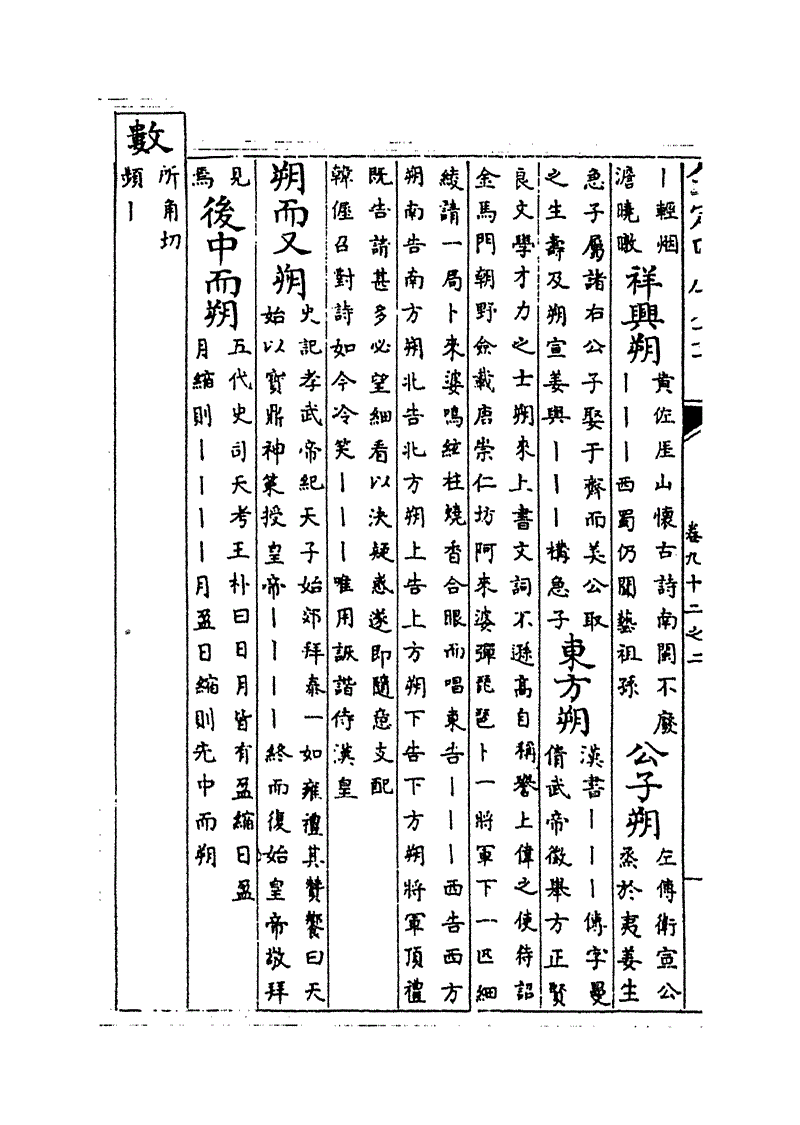 卷九十二之二
｜輕烟
澹曉暾
祥興朔
黄佐厓山懷古詩南閩不廢
｜｜｜西蜀仍聞藝祖孫
公子朔
左傳衛宣公
烝於夷姜生
急子屬諸右公子娶于齊而美公取
之生壽及朔宣姜與｜｜｜構急子
東方朔
漢書｜｜｜傳字曼
倩武帝徵舉方正賢
良文學才力之士朔來上書文詞不遜高自稱譽上偉之使待詔
金馬門朝野僉載唐崇仁坊阿來婆彈琵琶卜一將軍下一匹細
綾請一局卜來婆鳴絃柱燒香合眼而唱東告｜｜｜西告西方
朔南告南方朔北告北方朔上告上方朔下告下方朔將軍頂禮
既告請甚多必望細看以決疑惑遂即隨意支配
韓偓召對詩如今冷笑｜｜｜唯用詼諧侍漢皇
朔而又朔
史記孝武帝紀天子始郊拜泰一如雍禮其贊饗曰天
始以寶鼎神策授皇帝｜｜｜｜終而復始皇帝敬拜
見
焉
後中而朔
五代史司天考王朴曰日月皆有盈縮日盈
月縮則｜｜｜｜月盈日縮則先中而朔
數
所角切
頻｜